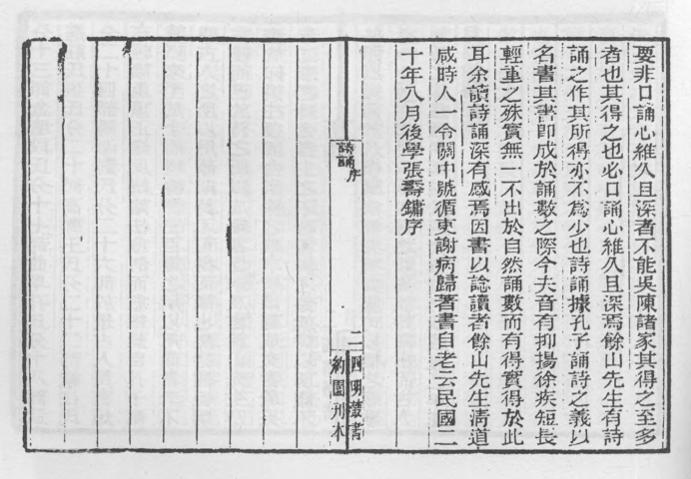 要非口誦心維久且深者不能吳陳諸家其得之至多
者也其得之也必口誦心維久且深焉餘山先生有詩
誦之作其所得亦不為少也詩誦據孔子誦詩之義以
名書其書即成於誦數之際今夫音有抑揚徐疾短長
輕重之殊實無一不出於自然誦數而有得實得於此
耳余讀詩誦深有感焉因書以諗讀者餘山先生清道
咸時人一令關中號循吏謝病歸著書自老云民國二
十年八月後學張壽鏞序
詩誦序
二
四明叢書
約園刊本